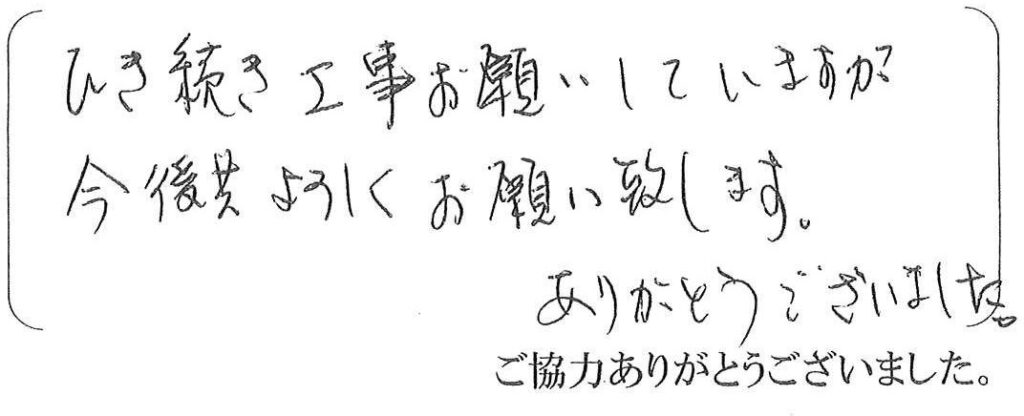 ひき続き工事お願いしていますが
今後共よろしくお願い致します。
ありがとうございました。
ご協力ありがとうございました。